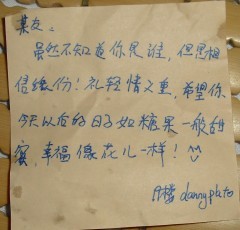 某友：
虽然不知道你是谁，但思相
信缘份！礼轻情义重，希望你
今天以后的日子如糖果一般甜
蜜，幸福像花儿一样！
月楼 dannypluto